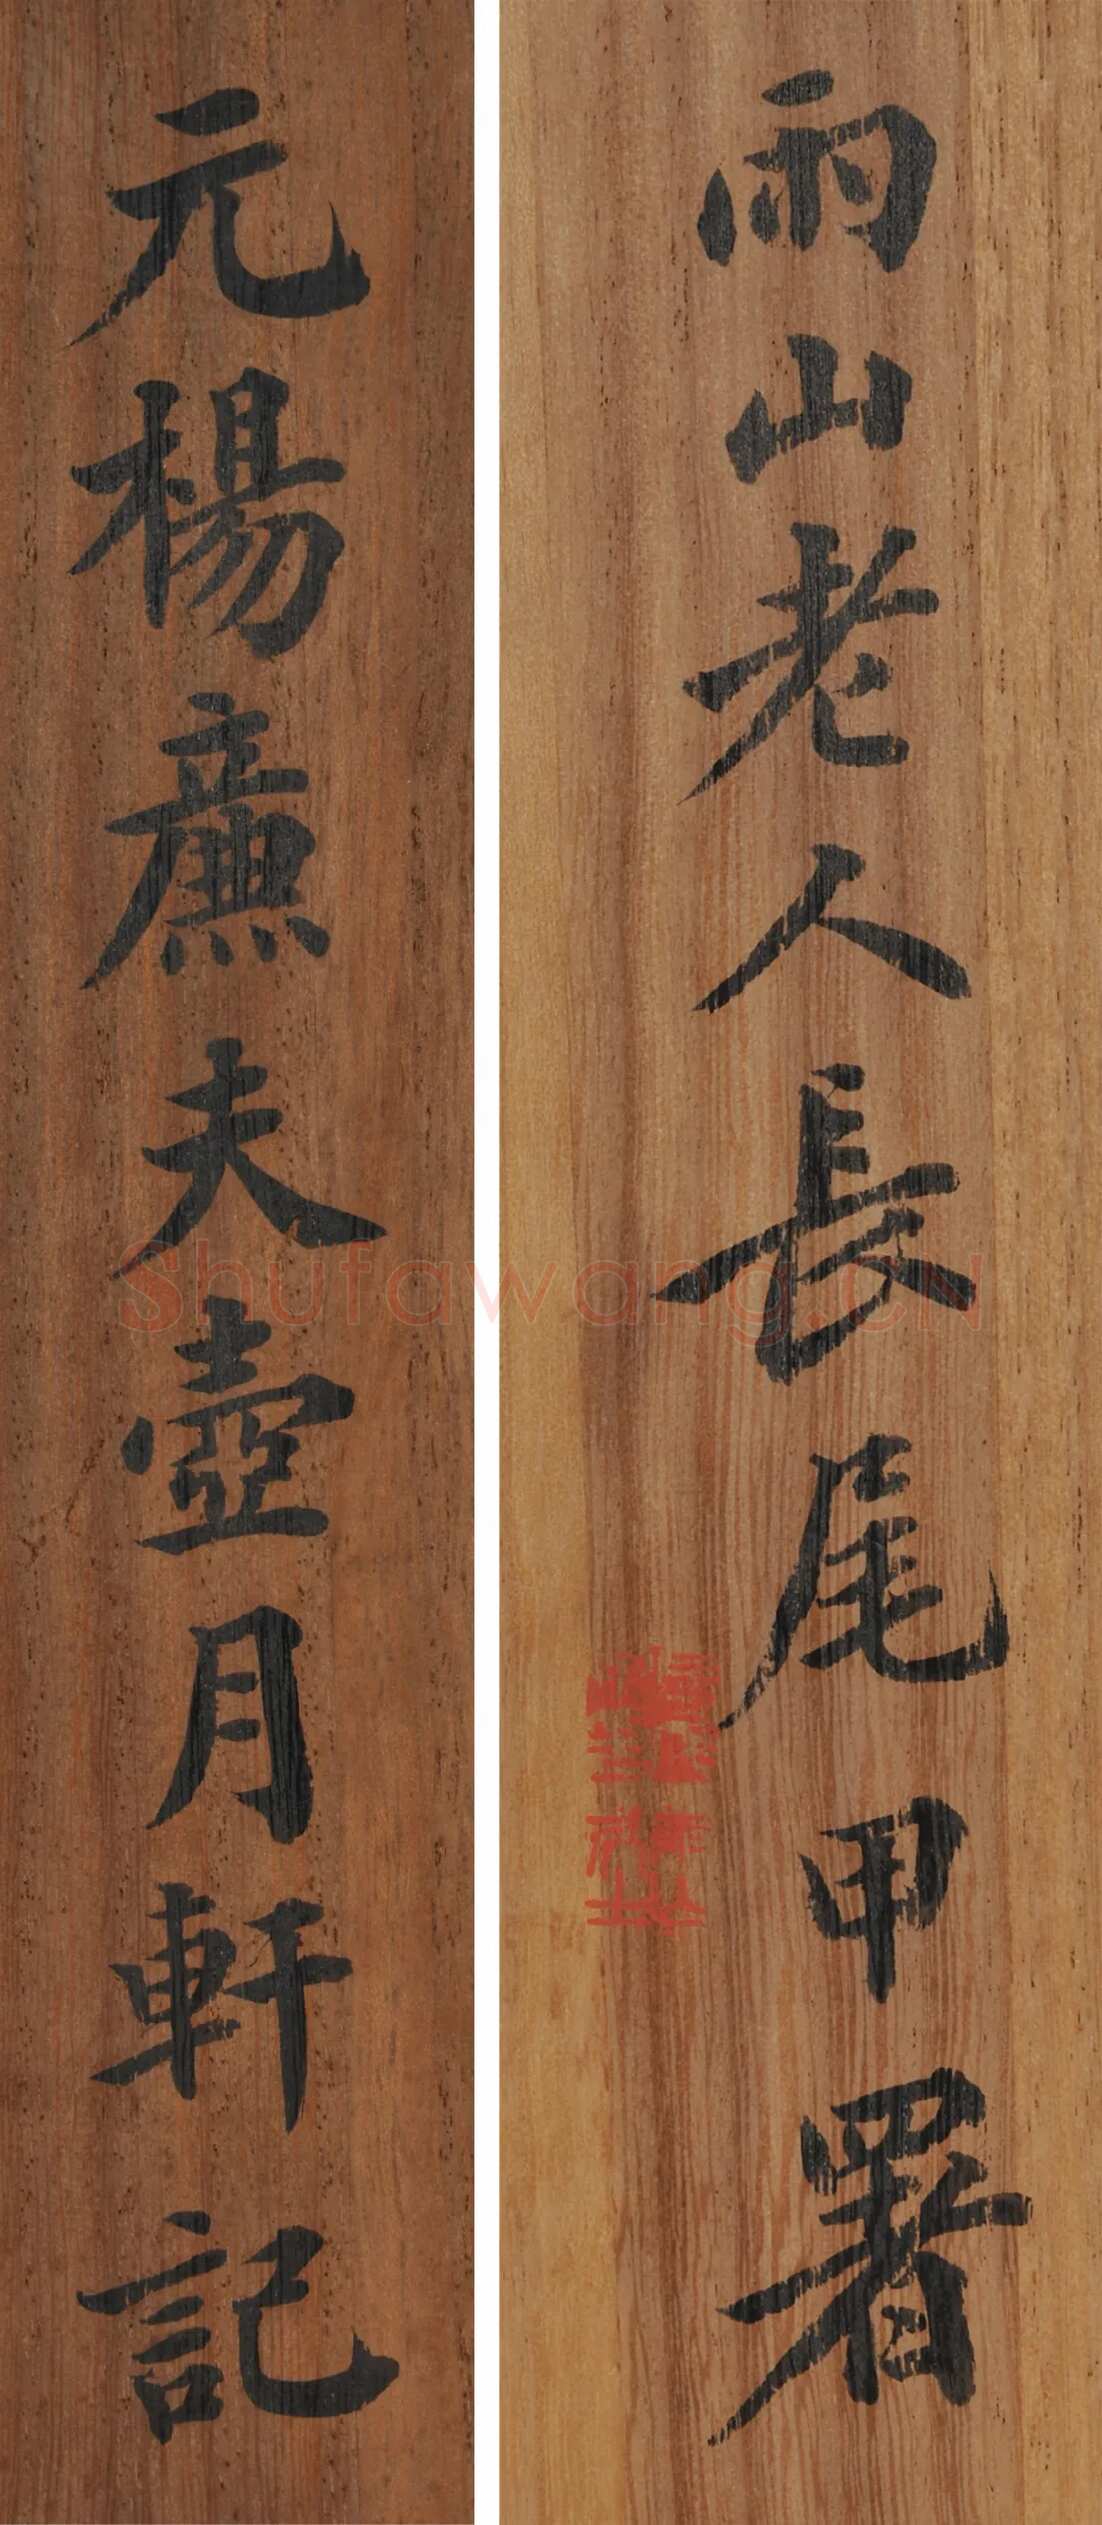 雨山老人長尾甲署
元楊廉夫壺月軒記
Shufawang.CN